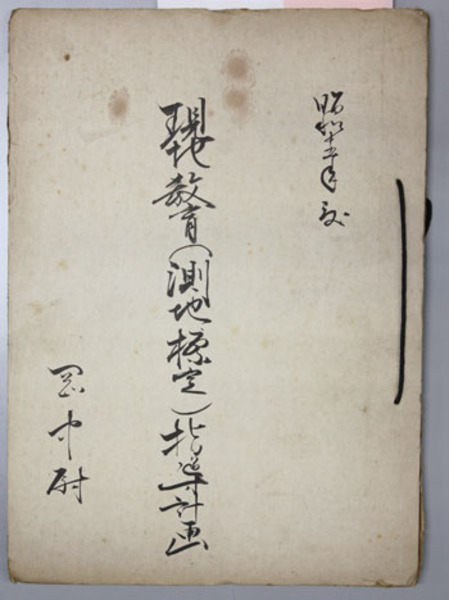 昭和十五年度
現地教育(測地標定)指導計画
岡中尉